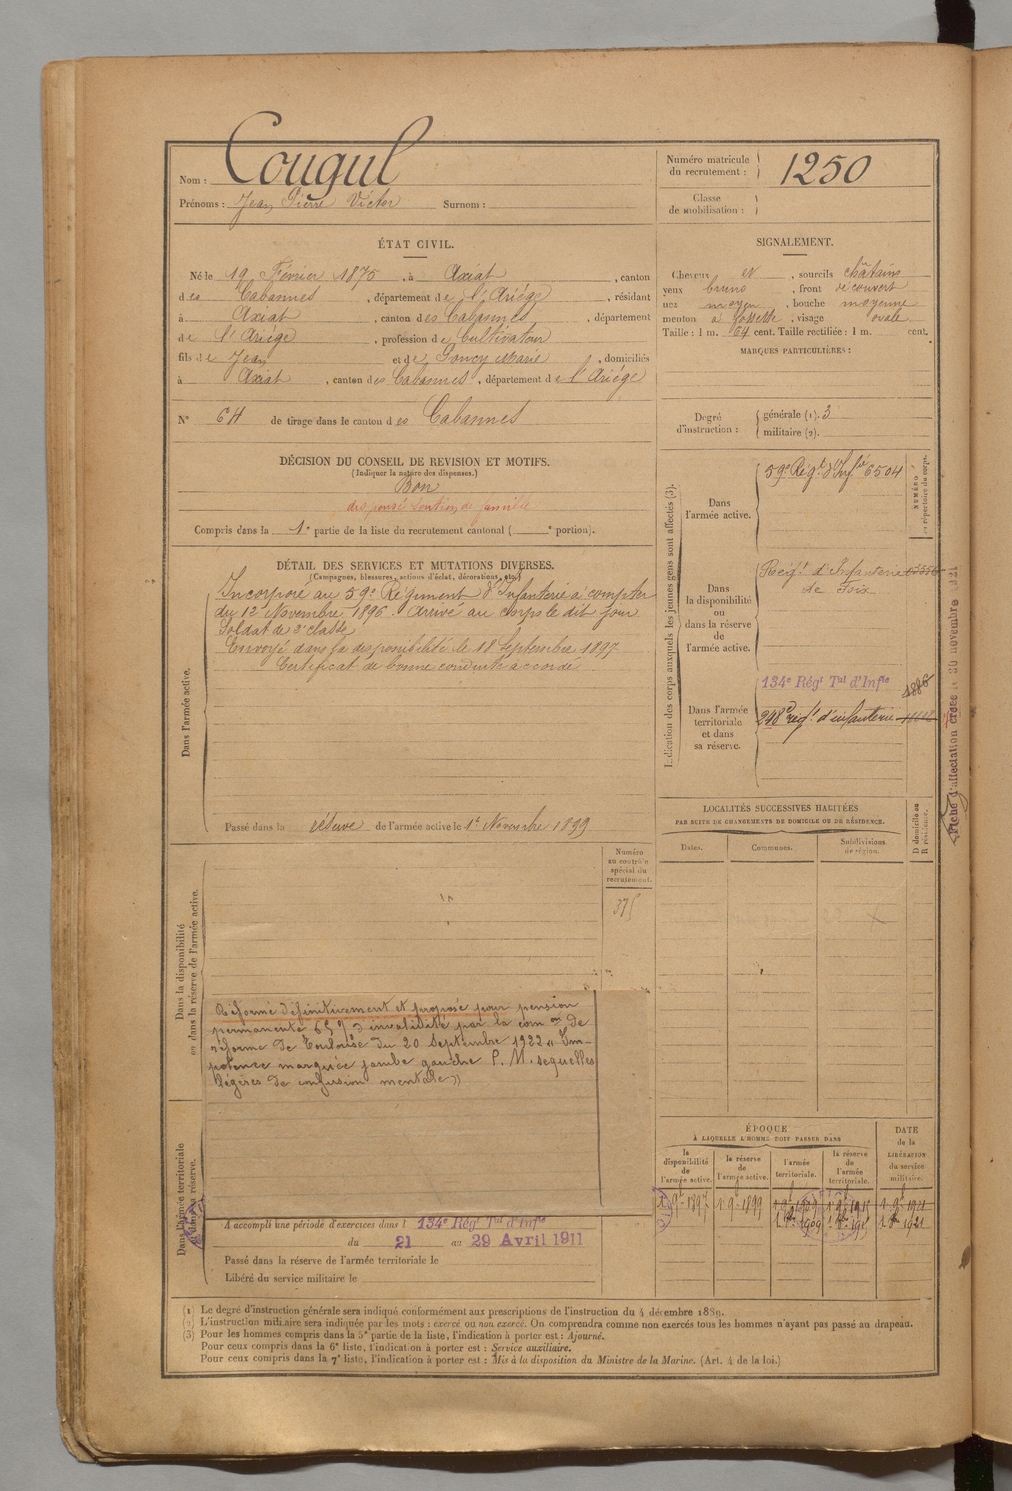 Nom : Cougul
Prénoms : Jean Pierre Victor Surnom :
Numéro matricule du recrutement : 1250
Classe de mobilisation :
ÉTAT CIVIL.
Né le 19 Février 1875, à Axiat, canton
des Cabannes, département de l'Ariége, résidant
à Axiat, canton des Cabannes, département
de l'Ariége, profession de Cultivateur
fils de Jean et de Goncy Marie, domiciliés
à Axiat, canton des Cabannes, département de l'Ariége
N° 64 de tirage dans le canton des Cabannes
SIGNALEMENT.
Cheveux et, sourcils châtains
yeux bruns, front découvert
nez moyen, bouche moyenne
menton à fossette, visage ovale
Taille : 1 m. 64 cent. Taille rectifiée : 1 m. cent.
MARQUES PARTICULIÈRES :
Degré d'instruction : générale (1). 3
militaire (2).
DÉCISION DU CONSEIL DE REVISION ET MOTIFS.
(Indiquer la nature des dispenses.)
Bon
dispensé soutien de famille
Compris dans la 1e partie de la liste du recrutement cantonal ( e portion).
DÉTAIL DES SERVICES ET MUTATIONS DIVERSES.
(Campagnes, blessures, actions d'éclat, décorations, etc.)
Dans l'armée active.
Incorporé au 59e Régiment d'Infanterie à compter
du 12 Novembre 1896. Arrivé au corps le dit jour
Soldat de 2e classe
Envoyé dans la disponibilité le 18 Septembre 1897
Certificat de bonne conduite accordé
Passé dans la réserve de l'armée active le 1er Novembre 1899
Indication des corps auxquels les jeunes gens sont affectés (3).
NUMÉRO au répertoire du corps.
Dans l'armée active.
59e Régt d'Infie 6504
Dans la disponibilité ou dans la réserve de l'armée active.
Régt d'Infanterie
de Foix
Dans l'armée territoriale et dans sa réserve.
134e Régt Tal d'Infie
248e régt d'infanterie
Fiche d'affectation créée le 30 novembre 1921
LOCALITÉS SUCCESSIVES HABITÉES
PAR SUITE DE CHANGEMENTS DE DOMICILE OU DE RÉSIDENCE.
D domicile ou R résidence.
Dates. Communes. Subdivisions de région.
Numéro au contrôle spécial du recrutement.
375
Dans la disponibilité ou dans la réserve de l'armée active.
Réformé définitivement et proposé pour pension
permanente 65 % d'invalidité par la comon de
réforme de Toulouse du 20 Septembre 1922 « Im-
potence marquée jambe gauche P. M. sequelles
légères de confusion mentale »
Dans l'armée territoriale et dans sa réserve.
A accompli une période d'exercices dans l 134e Régt Tal d'Infie
du 21 au 29 Avril 1911
Passé dans la réserve de l'armée territoriale le
Libéré du service militaire le
ÉPOQUE
À LAQUELLE L'HOMME DOIT PASSER DANS
la disponibilité de l'armée active.
la réserve de l'armée active.
l'armée territoriale.
la réserve de l'armée territoriale.
DATE de la LIBÉRATION du service militaire.
1 9bre 1897 1 9bre 1899 1 9bre 1909 1 9bre 1915 1 9bre 1921
(1) Le degré d'instruction générale sera indiqué conformément aux prescriptions de l'instruction du 4 décembre 1889.
(2) L'instruction militaire sera indiquée par les mots : exercé ou non exercé. On comprendra comme non exercés tous les hommes n'ayant pas passé au drapeau.
(3) Pour les hommes compris dans la 5e partie de la liste, l'indication à porter est : Ajourné.
Pour ceux compris dans la 6e liste, l'indication à porter est : Service auxiliaire.
Pour ceux compris dans la 7e liste, l'indication à porter est : Mis à la disposition du Ministre de la Marine. (Art. 4 de la loi.)